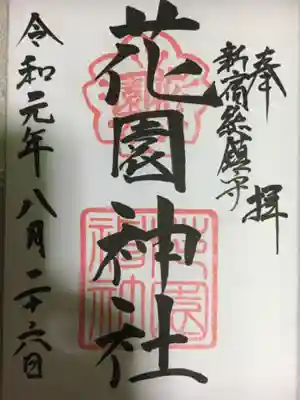 奉拝
新宿総鎮守
花園神社
令和元年八月二十六日